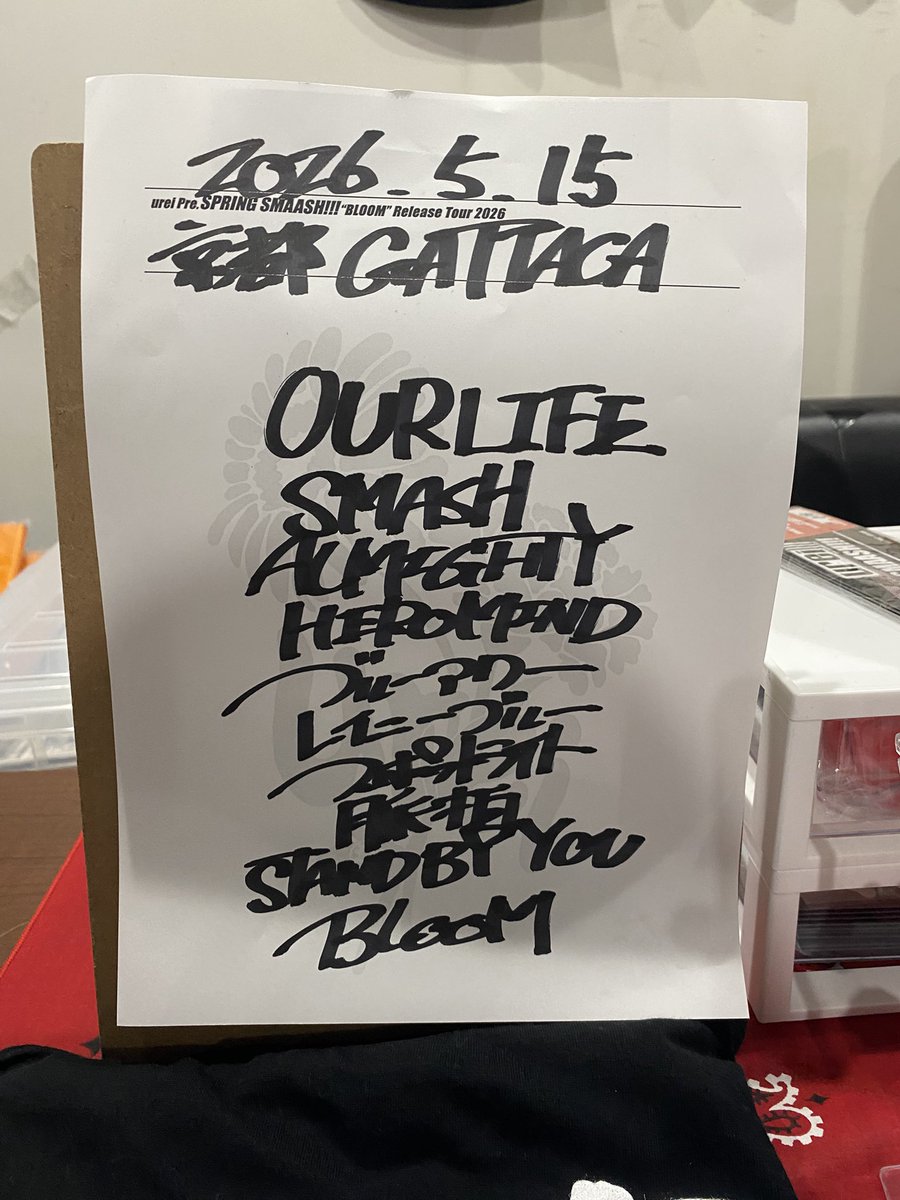 2026.5.15
urei Pre. SPRING SMAASH!!! "BLOOM" Release Tour 2026
京都 GATTACA
OUR LIFE
SMASH
ALMIGHTY
HEROMIND
ブルーアワー
レイニーブルー
スポットライト
脈拍
STAND BY YOU
BLOOM